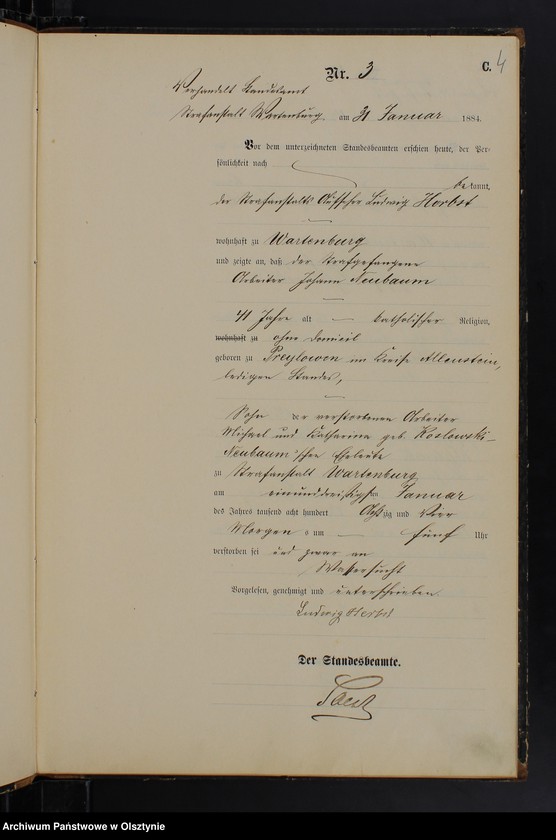 Nr. 3 C. 4
Verhandelt Standesamt
Strafanstalt Wartenburg am 31 Januar 1884.
Vor dem unterzeichneten Standesbeamten erschien heute, der Per-
sönlichkeit nach
bekannt,
der Strafanstalts Aufseher Ludwig Herbst
wohnhaft zu Wartenburg
und zeigte an, daß der Strafgefangene
Arbeiter Johann Neubaum
41 Jahre alt katholischer Religion,
wohnhaft zu ohne Domicil
geboren zu Preylowen im Kreise Allenstein,
ledigen Standes,
Sohn der verstorbenen Arbeiter
Michael und Katharina geb. Koslowski-
Neubaum'schen Eheleute
zu Strafanstalt Wartenburg
am einunddreißigsten Januar
des Jahres tausend acht hundert achtzig und vier
Morgens um fünf Uhr
verstorben sei und zwar an
Wassersucht
Vorgelesen, genehmigt und unterschrieben
Ludwig Herbst
Der Standesbeamte.
Archiwum Państwowe w Olsztynie